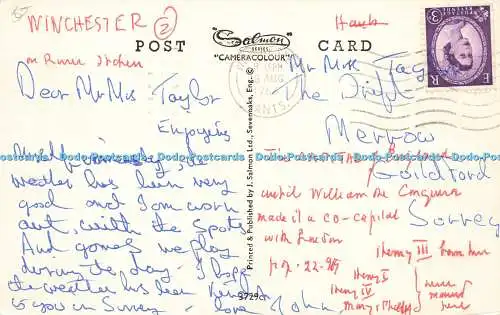 WINCHESTER (2)
on River Itchen
Hants
POST
"Salmon
SERIES
"CAMERACOLOUR"
CARD
POSTAGE
REVENUE
3D
E R
AUG
HANTS
Dear Mr Mrs Taylor
Enjoying
the
weather has been very
good and I am worn
out, with the Sports
And games we play
during the day - I hope
the weather has been kind
to you in Surrey -
love
John
Mr Mrs Taylor
The
Merrow
Guildford
Surrey
until William the Conqueror
made it a co-capital
with London
pop. 22-
Henry III born here
Henry I
Henry IV
Mary & Philip
were
married
here
Printed & Published by J. Salmon Ltd., Sevenoaks, Eng. ©
3729cr
Dodo-Postcards Dodo-Postcards Dodo-Postcards Dodo-Postcards Dodo-Postcards